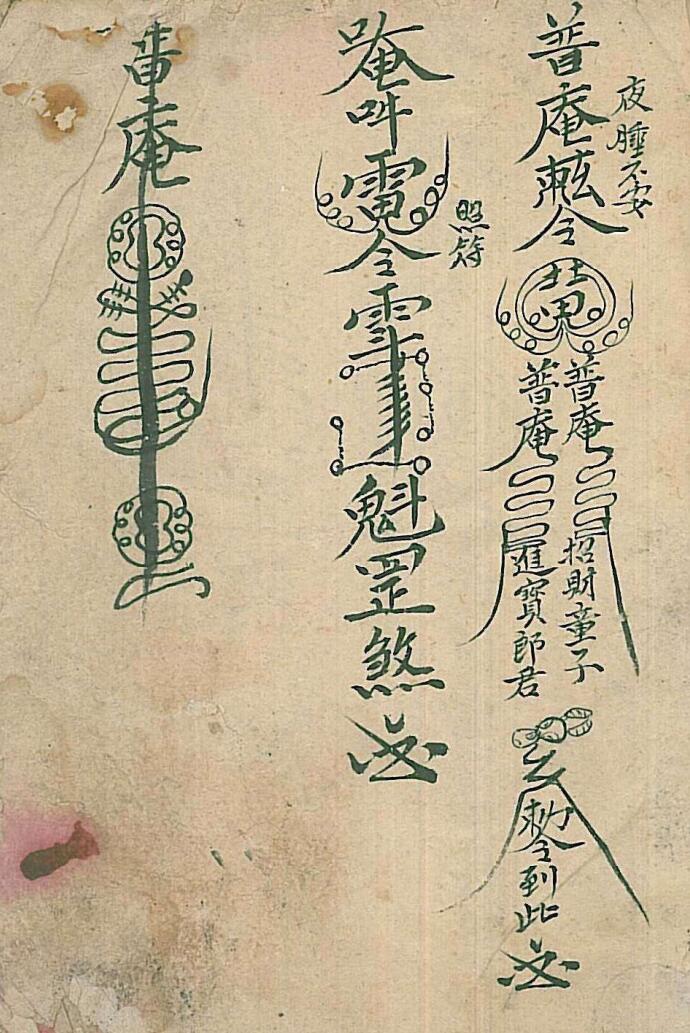 夜睡不安
普庵敕令
普庵
普庵
招財童子
進寶郎君
敕令到此
照符
唵吽
令
魁罡煞
普庵